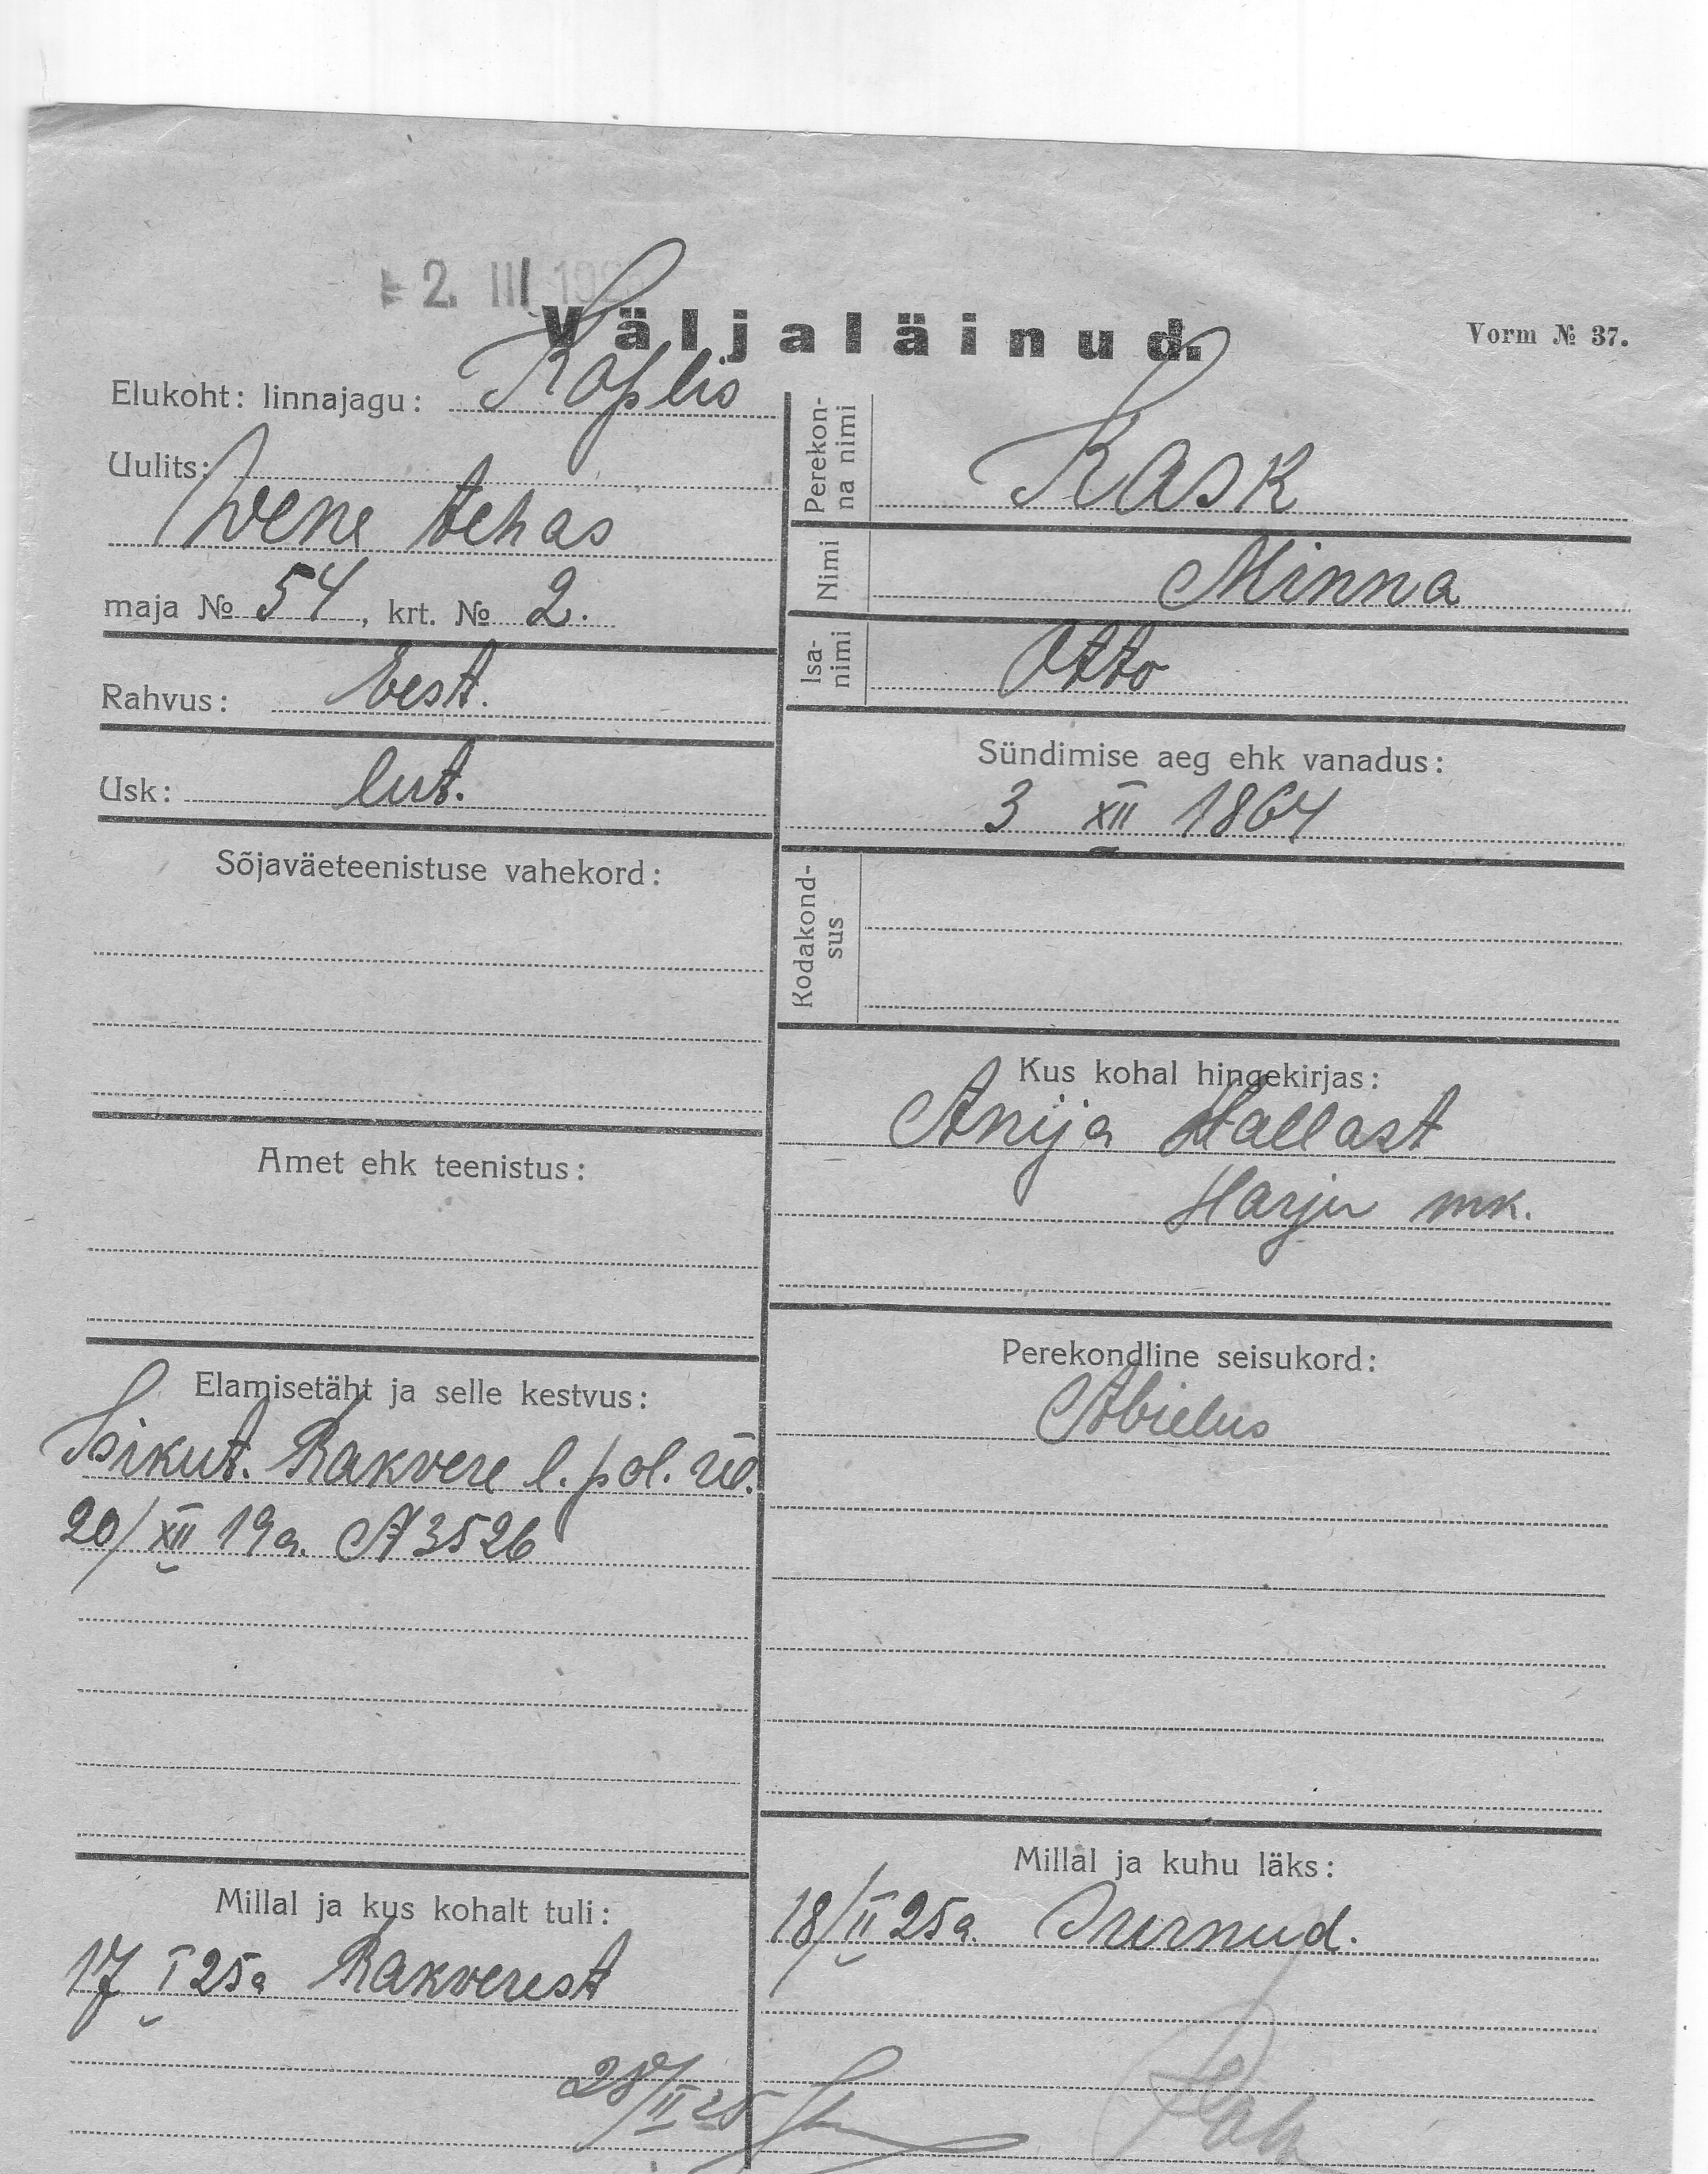 2. III 192
Väljaläinud.
Vorm № 37.
Elukoht: linnajagu: Koplis
Uulits:
Wene tehas
maja № 54, krt. № 2.
Rahvus: Eest.
Usk: lut.
Sõjaväeteenistuse vahekord:
Amet ehk teenistus:
Elamisetäht ja selle kestvus:
Isikut. Rakvere l. pol. üL.
20/XII 19a. A 3526
Millal ja kus kohalt tuli:
17 I 25a Rakverest
28/II 25
Perekon-
na nimi
Kask
Nimi
Minna
Isa-
nimi
Otto
Sündimise aeg ehk vanadus:
3 XII 1864
Kodakond-
sus
Kus kohal hingekirjas:
Anija Hallast
Harju mk.
Perekondline seisukord:
Abielus
Millal ja kuhu läks:
18/II 25a. Surnud.